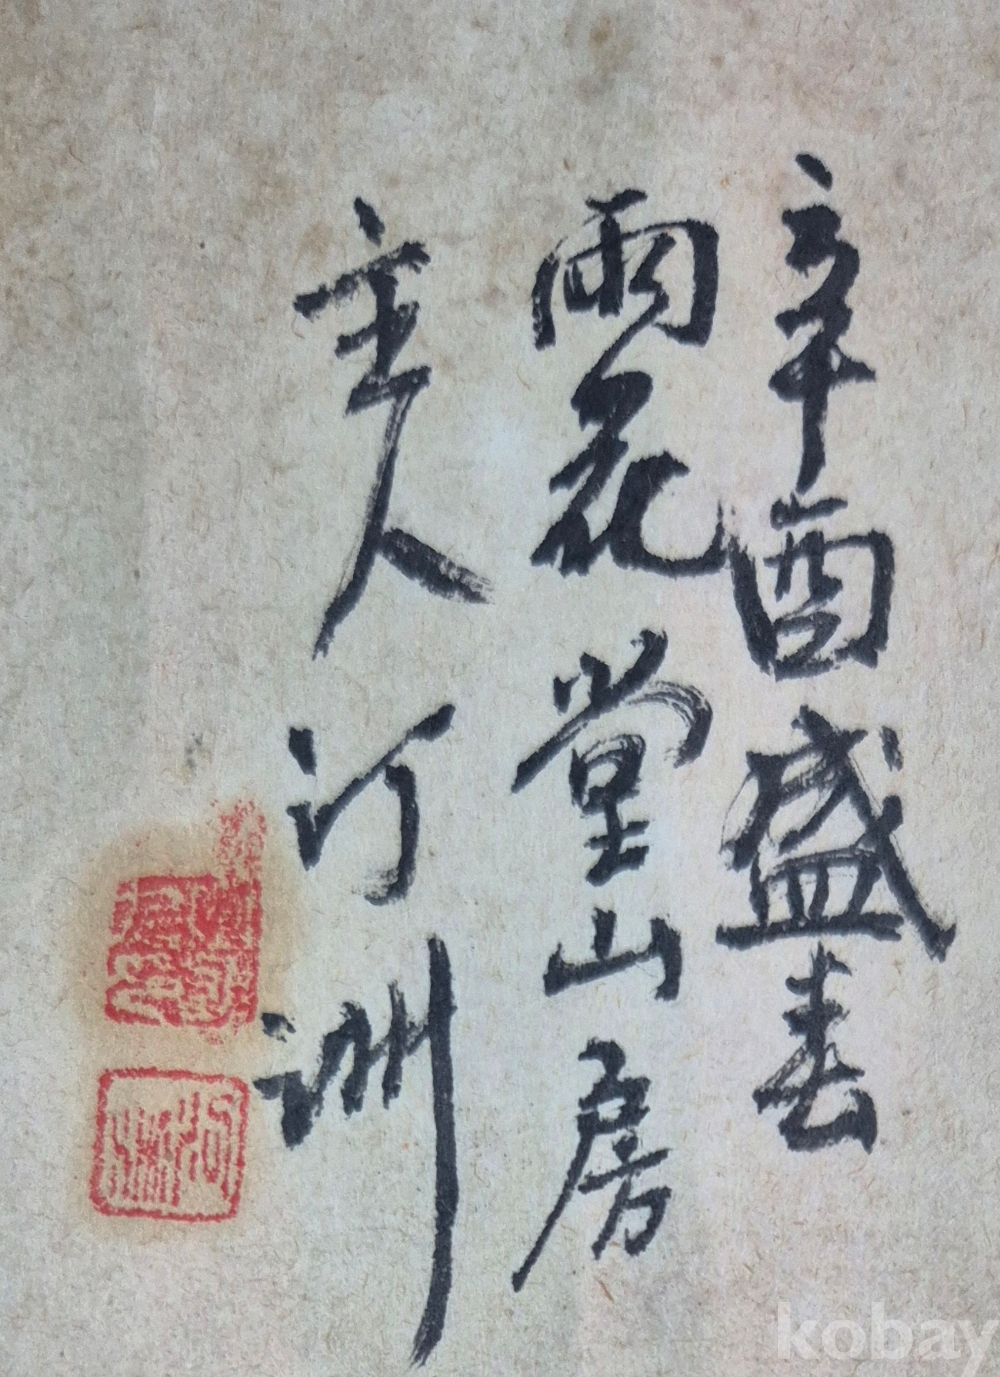 辛酉盛春
雨花堂山房
主人汀洲
kobay